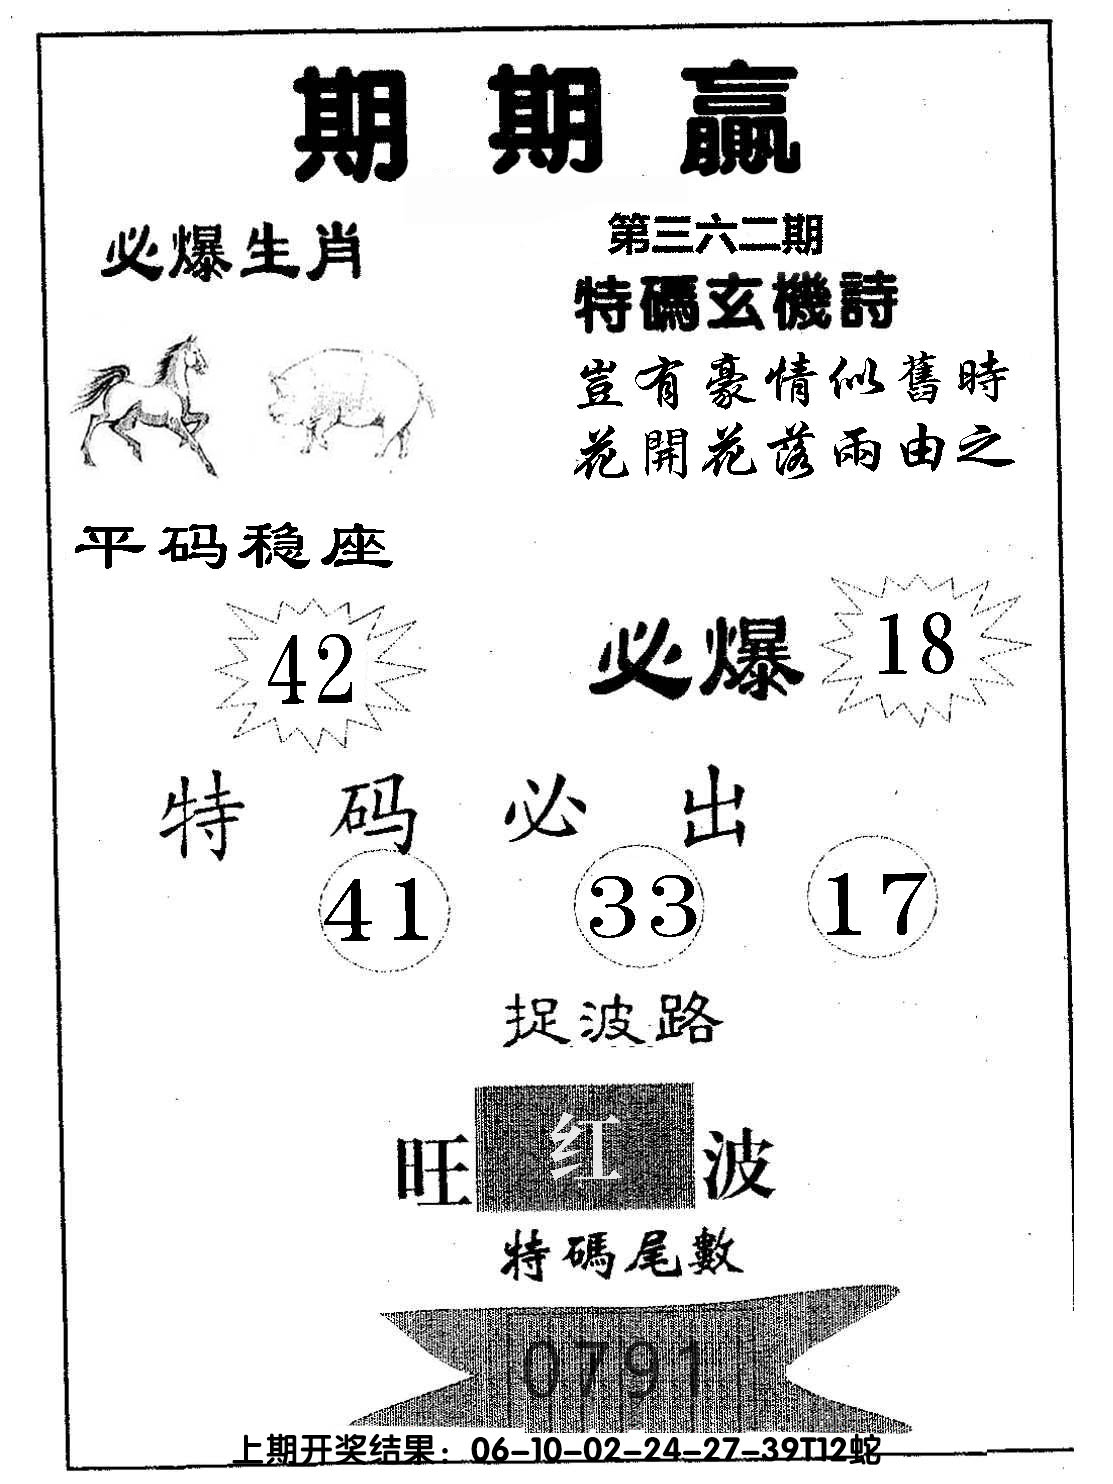 期期贏
必爆生肖
第三六二期
特碼玄機詩
豈有豪情似舊時
花開花落兩由之
平码稳座
42
必爆
18
特码必出
41 33 17
捉波路
旺红波
特碼尾數
0791
上期开奖结果：06-10-02-24-27-39T12蛇